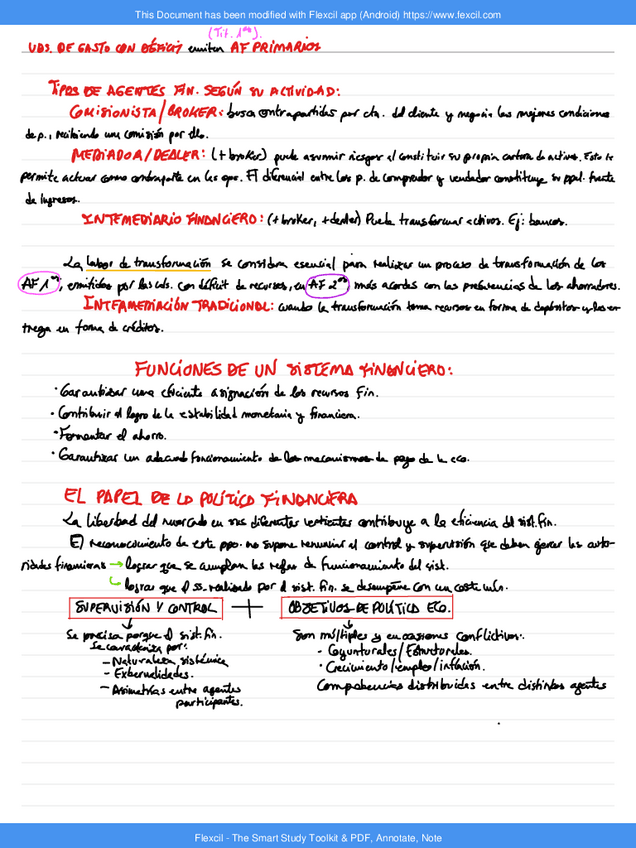 This Document has been modified with Flexcil app (Android) https://www.flexcil.com
(Tít. 1ºˢ).
UDS. DE GASTO CON DÉFICIT emiten AF PRIMARIOS
TIPOS DE AGENTES FIN. SEGÚN SU ACTIVIDAD:
COMISIONISTA/BROKER: busca contrapartidas por cta. del cliente y negocia las mejores condiciones
de p., recibiendo una comisión por ello.
MEDIADOR/DEALER: (+broker) puede asumir riesgos al constituir su propia cartera de activos. Esto le
permite actuar como contraparte en las ope. El diferencial entre los p. de comprador y vendedor constituye su ppal. fuente
de ingresos.
INTEMEDIARIO FINANCIERO: (+broker, +dealer) Puede transformar activos. Ej: bancos.
La labor de transformación se considera esencial para realizar un proceso de transformación de los
AF 1ºˢ, emitidos por las uds. con déficit de recursos, en AF 2ºˢ más acordes con las preferencias de los ahorradores.
INTERMEDIACIÓN TRADICIONAL: cuando la transformación toma recursos en forma de depósitos y los en-
trega en forma de créditos.
FUNCIONES DE UN SISTEMA FINANCIERO:
· Garantizar una eficiente asignación de los recursos fin.
· Contribuir al logro de la estabilidad monetaria y financiera.
· Fomentar el ahorro.
· Garantizar un adecuado funcionamiento de los mecanismos de pago de la eco.
EL PAPEL DE LA POLÍTICA FINANCIERA
La libertad del mercado en sus diferentes vertientes contribuye a la eficiencia del sist. fin.
El reconocimiento de este ppo. no supone renunciar al control y supervisión que deben ejercer las auto-
ridades financieras → lograr que se cumplan las reglas de funcionamiento del sist.
↳ lograr que el ss. realizado por el sist. fin. se desempeñe con un coste mín.
SUPERVISIÓN Y CONTROL + OBJETIVOS DE POLÍTICA ECO.
Se precisa porque el sist. fin.
se caracteriza por:
- Naturaleza sistémica
- Externalidades.
- Asimetrías entre agentes
participantes.
Son múltiples y en ocasiones conflictivos:
- Coyunturales/Estructurales.
· Crecimiento/empleo/inflación.
Competencias distribuidas entre distintos agentes
Flexcil - The Smart Study Toolkit & PDF, Annotate, Note